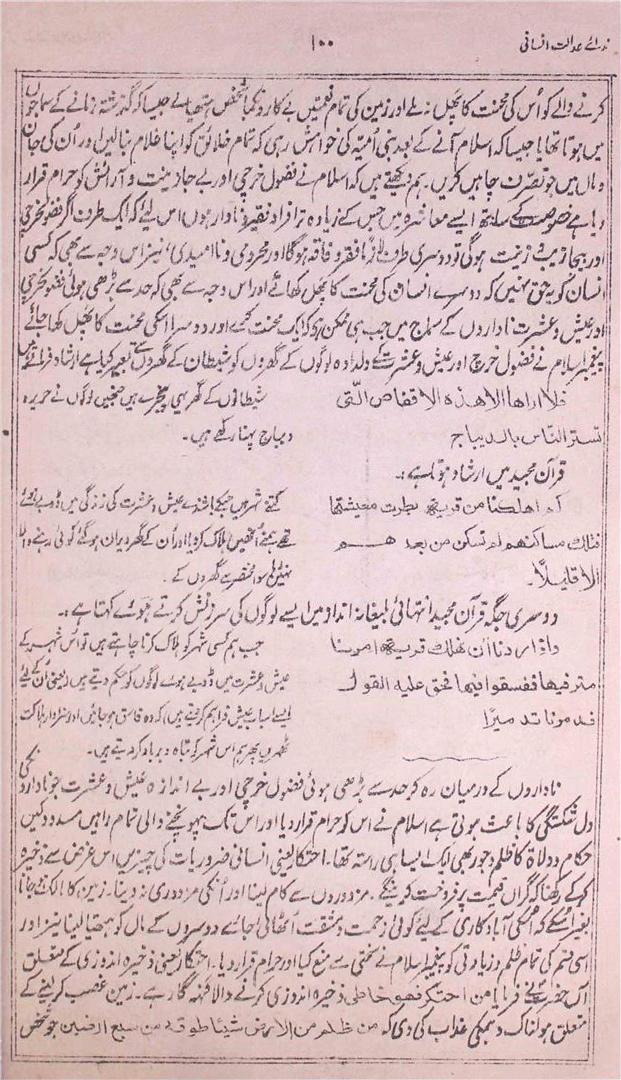 ندائے عدالت انسانی
۱۰۰
کرنے والے کو اُس کی محنت کا پھل نہ ملے اور زمین کی تمام نعمتیں بے کار و نکما شخص ہتھیالے جیسا کہ گذشتہ زمانے کے سماجوں
میں ہوتا تھا یا جیسا کہ اسلام آنے کے بعد بنی اُمیّہ کی خواہش رہی کہ تمام خلائق کو اپنا غلام بنالیں اور اُن کی جان
و مال میں جو تصرّف چاہیں کریں۔ ہم دیکھتے ہیں کہ اسلام نے فضول خرچی اور بے جا زینت و آرائش کو حرام قرار
دیا ہے خصوصیت کے ساتھ ایسے معاشرہ میں جس کے زیادہ تر افراد فقیر و نادار ہوں اس لیے کہ ایک طرف اگر فضول خرچی
اور بیجا زیب و زینت ہوگی تو دوسری طرف لازماً فقر و فاقہ ہوگا اور محرومی و نا امیدی، نیز اس وجہ سے بھی کہ کسی
انسان کو یہ حق نہیں کہ دوسرے انسان کی محنت کا پھل کھائے اور اس وجہ سے بھی کہ حد سے بڑھی ہوئی فضول خرچی
اور عیش و عشرت ناداروں کے سماج میں جب ہی ممکن ہے کہ ایک محنت کرے اور دوسرا اسکی محنت کا پھل کھا جائے
پیغمبر اسلام نے فضول خرچ اور عیش و عشرت کے دلدادہ لوگوں کے گھروں کو شیطان کے گھروں سے تعبیر کیا ہے ارشاد فرماتے ہیں
فلا اراها الا هذه الاقفاص الّتی
شیطانوں کے گھر یہی پنجرے ہیں جنھیں لوگوں نے حریر و
تستر النّاس بالدیباج
دیباج پہنا رکھے ہیں۔
قرآن مجید میں ارشاد ہوتا ہے:۔
کم اهلکنا من قریة بطرت معیشتها
کتنے شہر ہیں جنکے باشندے عیش و عشرت کی زندگی میں ڈوبے ہوئے
فتلك مساکنهم لم تسکن من بعد هم
تھے ہمنے اُنھیں ہلاک کر دیا اور اُن کے گھر ویران ہوگئے کوئی رہنے والا
الا قلیلًا۔
نہیں رہا سوا مختصر سے گھروں کے۔
دوسری جگہ قرآن مجید انتہائی بلیغانہ انداز میں ایسے لوگوں کی سرزنش کرتے ہوئے کہتا ہے:۔
واذا اردنا ان نهلك قریة امرنا
جب ہم کسی شہر کو ہلاک کرنا چاہتے ہیں تو اُس شہر کے
مترفیها ففسقوا فیها فحق علیه القول
عیش و عشرت میں ڈوبے ہوئے لوگوں کو حکم دیتے ہیں (یعنی اُن کے لیے
فدمرنا تدمیرًا
ایسے اسباب عیش فراہم کر دیتے ہیں) کہ وہ فاسق ہو جائیں اور سزاوار ہلاکت
ٹھہریں پھر ہم اس شہر کو تباہ و برباد کر دیتے ہیں۔
ناداروں کے درمیان رہ کر حد سے بڑھی ہوئی فضول خرچی اور بے اندازہ عیش و عشرت جو ناداروں کی
دل شکستگی کا باعث ہوتی ہے اسلام نے اس کو حرام قرار دیا اور اس تک پہونچنے والی تمام راہیں مسدود کیں
حکام و ولاۃ کا ظلم و جور بھی ایک ایسا ہی راستہ تھا۔ احتکار یعنی انسانی ضروریات کی چیزیں اس غرض سے ذخیرہ
کر کے رکھنا کہ گراں قیمت پر فروخت کرینگے۔ مزدوروں سے کام لینا اور اُنکی مزدوری نہ دینا۔ زمین کا مالک بن جانا
بغیر اسکے کہ اُسکی آبادکاری کے لیے کوئی زحمت و مشقت اُٹھائی جائے دوسروں کے مال کو ہتھیا لینا نیز اور
اسی قسم کی تمام ظلم و زیادتی کو پیغمبر اسلام نے سختی سے منع کیا اور حرام قرار دیا۔ احتکار یعنی ذخیرہ اندوزی کے متعلق
آنحضرتؐ نے فرمایا من احتکر فهو خاطی ذخیرہ اندوزی کرنے والا گنہگار ہے۔ زمین غصب کر لینے کے
متعلق ہولناک دھمکی عذاب کی دی کہ من ظلم من الارض شیئا طوقه من سبع ارضین جو شخص